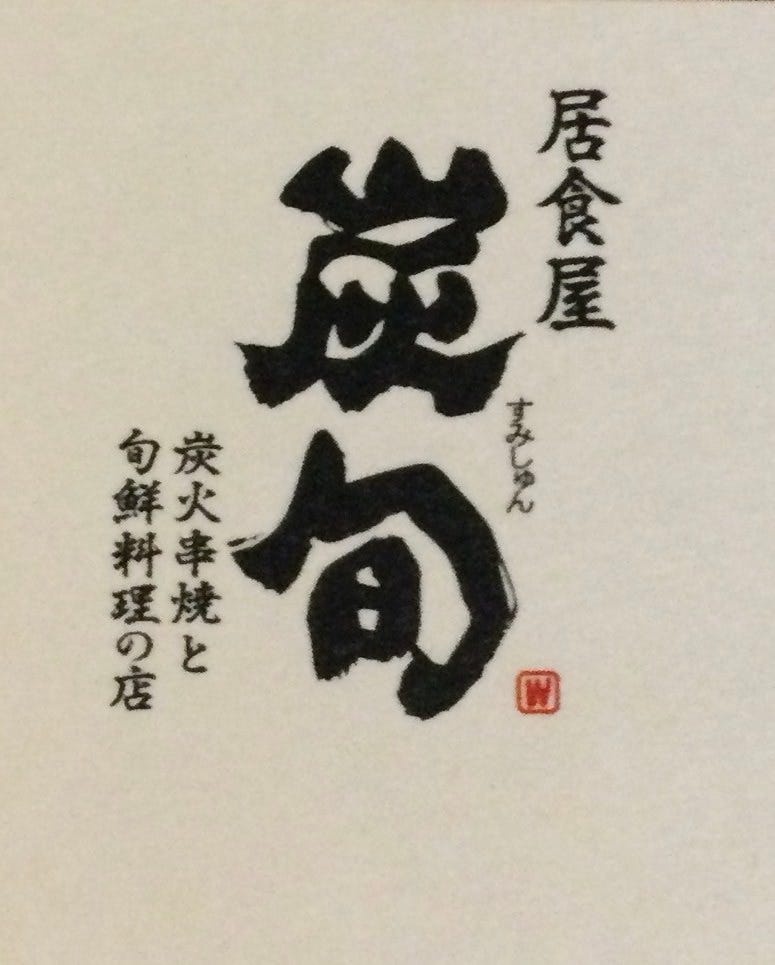 居食屋
炭旬
すみしゅん
炭火串焼と
旬鮮料理の店
W